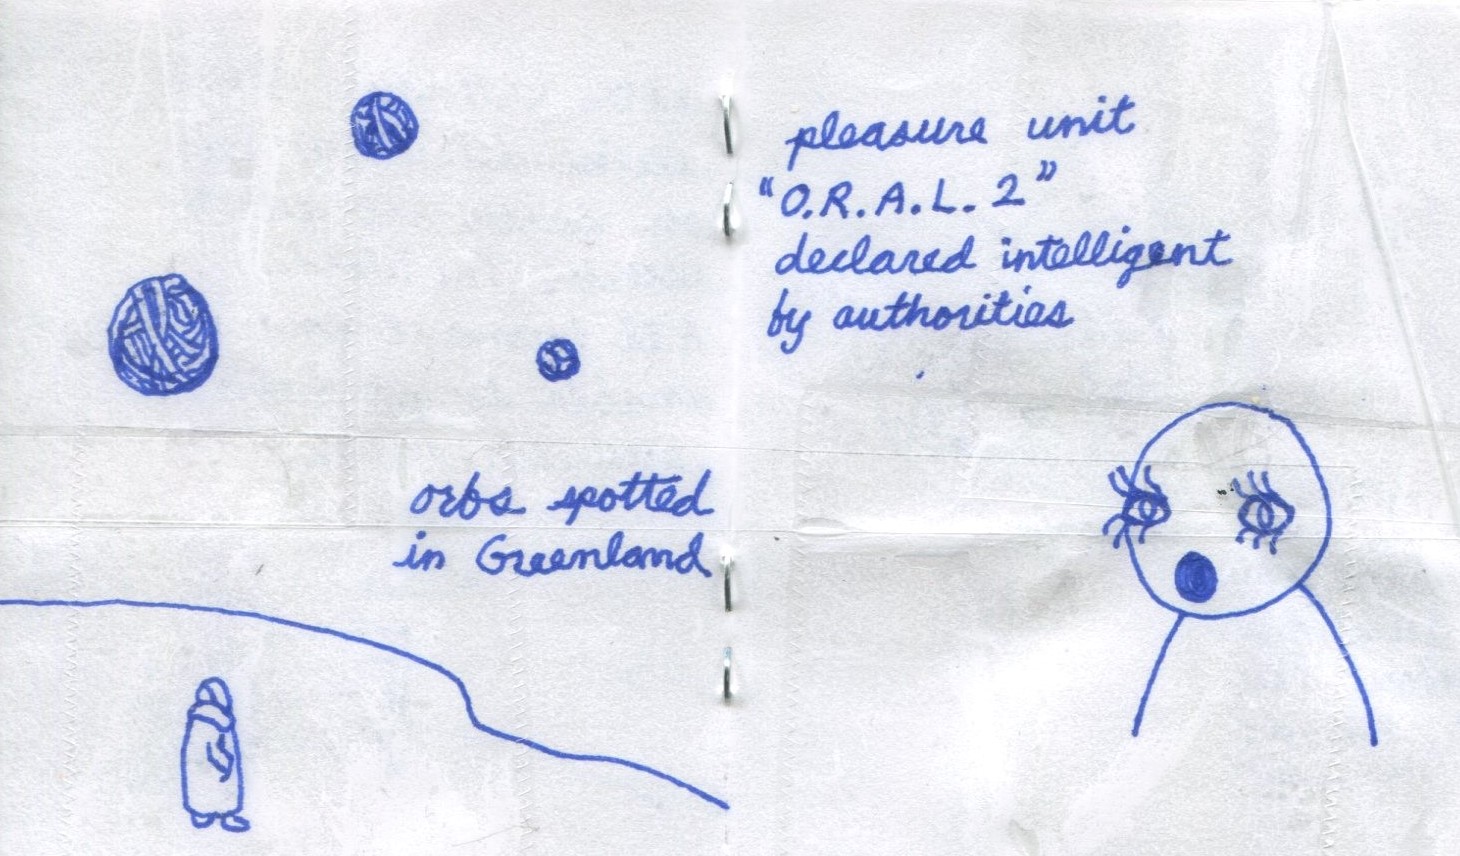 orbs spotted
in Greenland
pleasure unit
"O.R.A.L. 2"
declared intelligent
by authorities